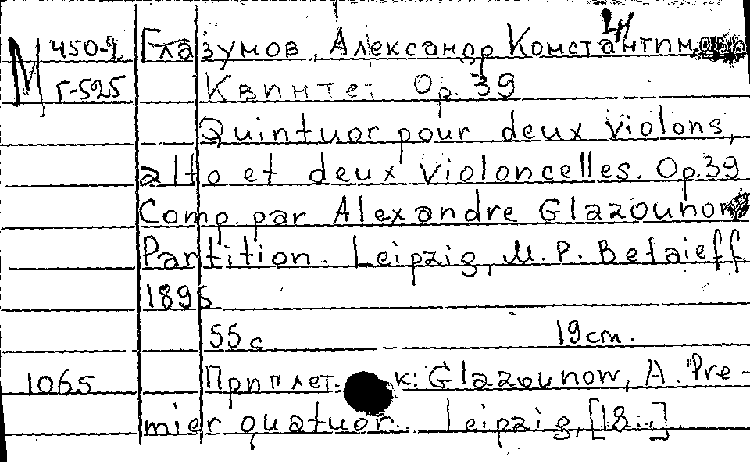 М 450-9 Глазунов, Александр Константинович
Г-525 Квинтет Op. 39
Quintuor pour deux violons,
alto et deux violoncelles. Op. 39
Comp par Alexandre Glazounow
Partition. Leipzig, M. P. Belaieff
1895
55 с 19 cm.
1065 Приплет. к: Glazounow, A. Pre-
mier quatuor. Leipzig, [18..]